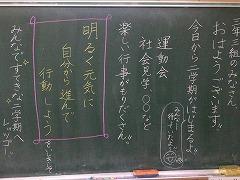 三年一組のみなさん
おはようございます。
今日から二学期がはじまるよ。
みんな
待っていたよ
運動会
社会見学 など
楽しい行事がもりだくさん。
明るく元気に
自分から進んで
行動しよう
みんなですてきな二学期へ
レッツゴー